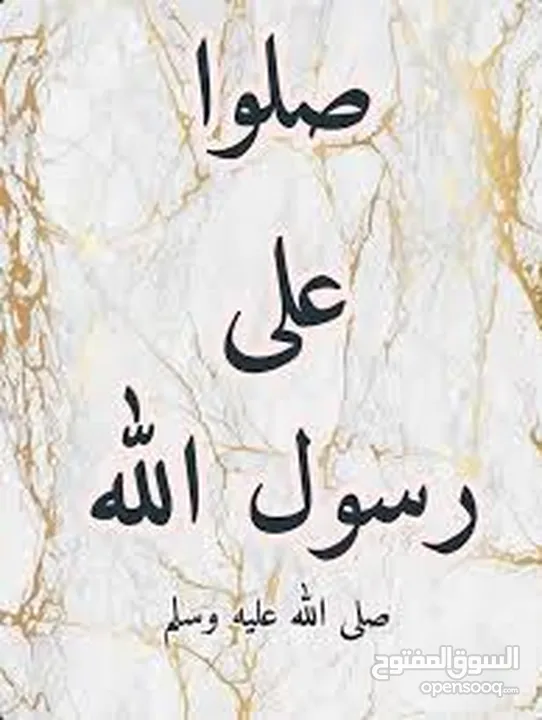 صلوا
على
رسول الله
صلى الله عليه وسلم
السوق المفتوح
opensooq.com